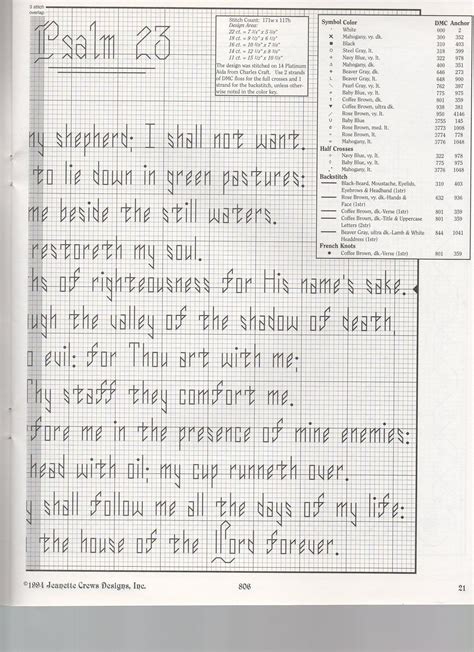 3 stitch
overlap
Psalm 23
my shepherd; I shall not want.
to lie down in green pastures:
me beside the still waters.
restoreth my soul.
hs of righteousness for His name's sake.
ugh the valley of the shadow of death,
o evil: for Thou art with me;
Thy staff they comfort me.
fore me in the presence of mine enemies:
head with oil; my cup runneth over.
y shall follow me all the days of my life:
the house of the Lord forever.
Stitch Count: 171w x 117h
Design Area:
22 ct. = 7 ¾" x 5 ¼"
18 ct. = 9 ½" x 6 ½"
14 ct. = 12 ¼" x 8 ⅜"
11 ct. = 15 ½" x 10 ⅝"
The design was stitched on 14 Platinum
Aida from Charles Craft. Use 2 strands
of DMC floss for the full crosses and 1
strand for the backstitch, unless other-
wise noted in the color key.
Symbol Color DMC Anchor
White 000 2
Mahogany, vy. dk. 300 352
Black 310 403
Steel Gray, lt. 318 399
Navy Blue, vy. lt. 322 978
Mahogany, dk. 400 351
Beaver Gray, dk. 646 273
Beaver Gray, lt. 648 900
Pearl Gray, vy. lt. 762 397
Baby Blue, vy. lt. 775 975
Coffee Brown, dk. 801 359
Coffee Brown, ultra dk. 938 381
Rose Brown, vy. lt. 950 4146
Baby Blue 3755 145
Rose Brown, med. lt. 3773 1008
Rose Brown, lt. 3774 778
Mahogany, lt. 3776 1048
Half Crosses
Navy Blue, vy. lt. 322 978
Baby Blue, vy. lt. 775 975
Mahogany, lt. 3776 1048
Backstitch
Black-Beard, Moustache, Eyelids, 310 403
Eyebrows & Headband (1str)
Rose Brown, vy. dk.-Hands & 632 936
Face (1str)
Coffee Brown, dk.-Verse (1str) 801 359
Coffee Brown, dk.-Title & Uppercase 801 359
Letters (2str)
Beaver Gray, ultra dk.-Lamb & White 844 1041
Headdress (1str)
French Knots
Coffee Brown, dk.-Verse (1str) 801 359
©1994 Jeanette Crews Designs, Inc.
806
21